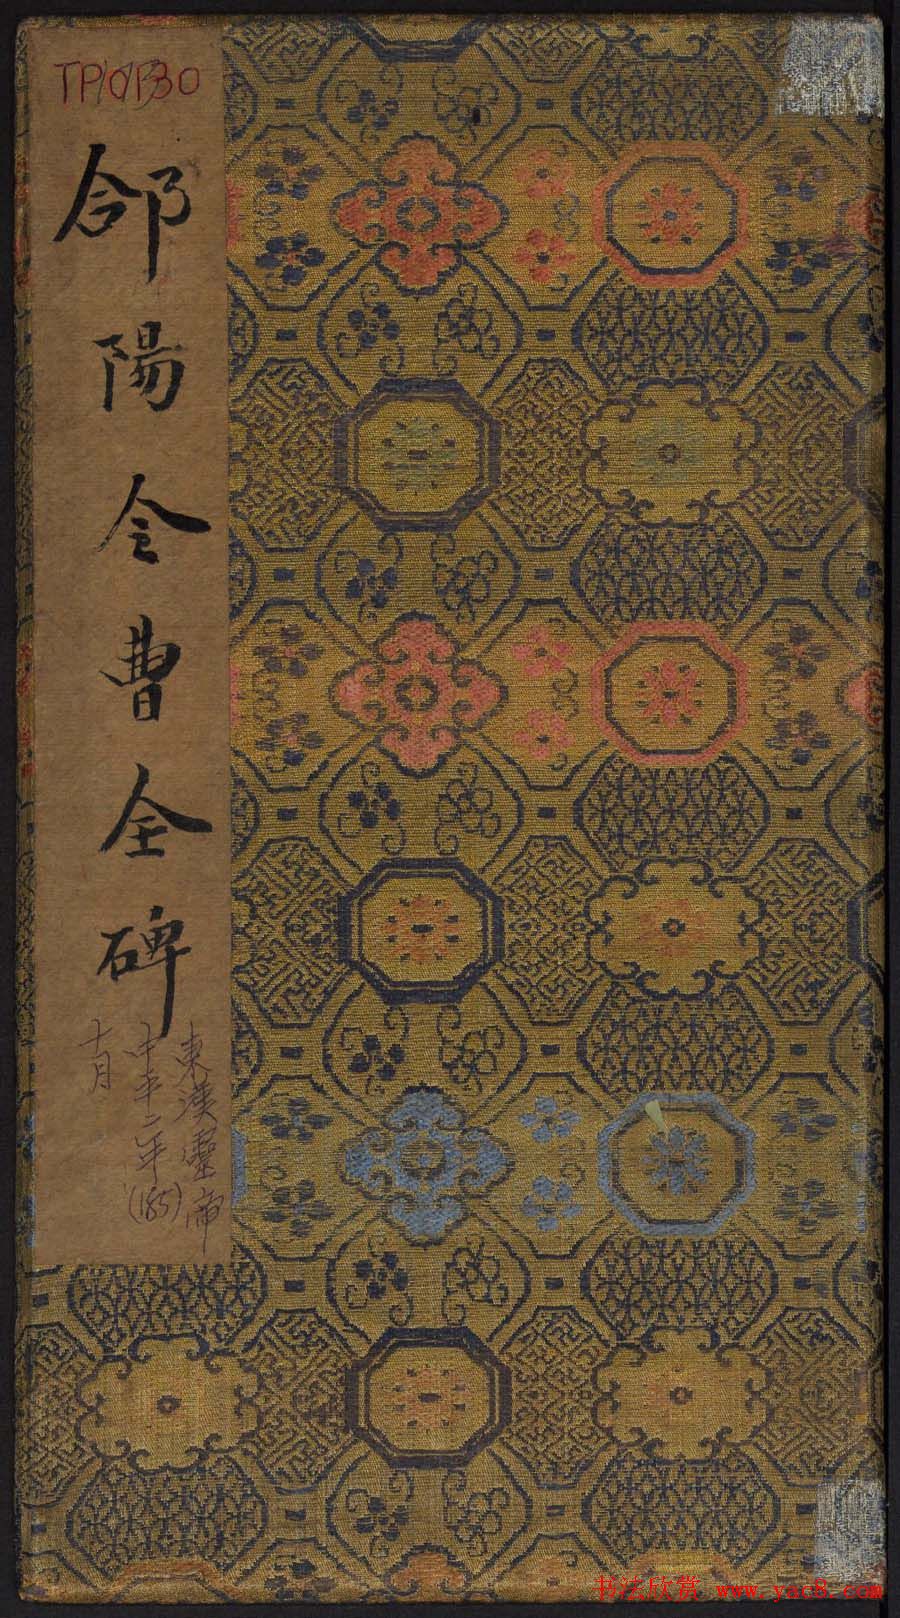 TP10130
郃陽令曹全碑
東漢靈帝
中平二年(185)
十月
书法欣赏 www.yac8.com